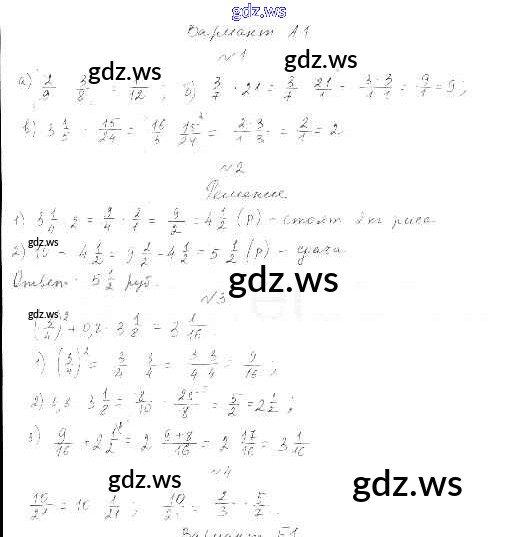 gdz.ws
Вариант А1
№1
а) 2/9 · 3/8 = 1/12 ; б) 3/7 · 21 = 3/7 · 21/1 = 3·3/1·1 = 9/1 = 9;
gdz.ws gdz.ws
в) 3 1/5 · 15/24 = 16/5 · 15/24 = 2·3/1·3 = 2/1 = 2
№2
Решение
1) · 2 = 9/4 · 2/1 = 9/2 = 4 1/2 (р) - стоят 2 кг риса
gdz.ws
2) 10 - 4 1/2 = 9 1/2 - 4 1/2 = 5 1/2 (р) - сдача.
Ответ: 5 1/2 руб.
gdz.ws
№3
gdz.ws
(3/4)² + 0,8 · 3 1/8 = 3 1/16.
1) (3/4)² = 3/4 · 3/4 = 3·3/4·4 = 9/16 ;
2) 0,8 · 3 1/8 = 8/10 · 25/8 = 5/2 = 2 1/2 ;
3) 9/16 + 2 1/2 = 2 9+8/16 = 2 17/16 = 3 1/16
gdz.ws
№4
gdz.ws
10/21 = 10 · 1/21 ; 10/21 = 2/3 · 5/7 .
Вариант Б1